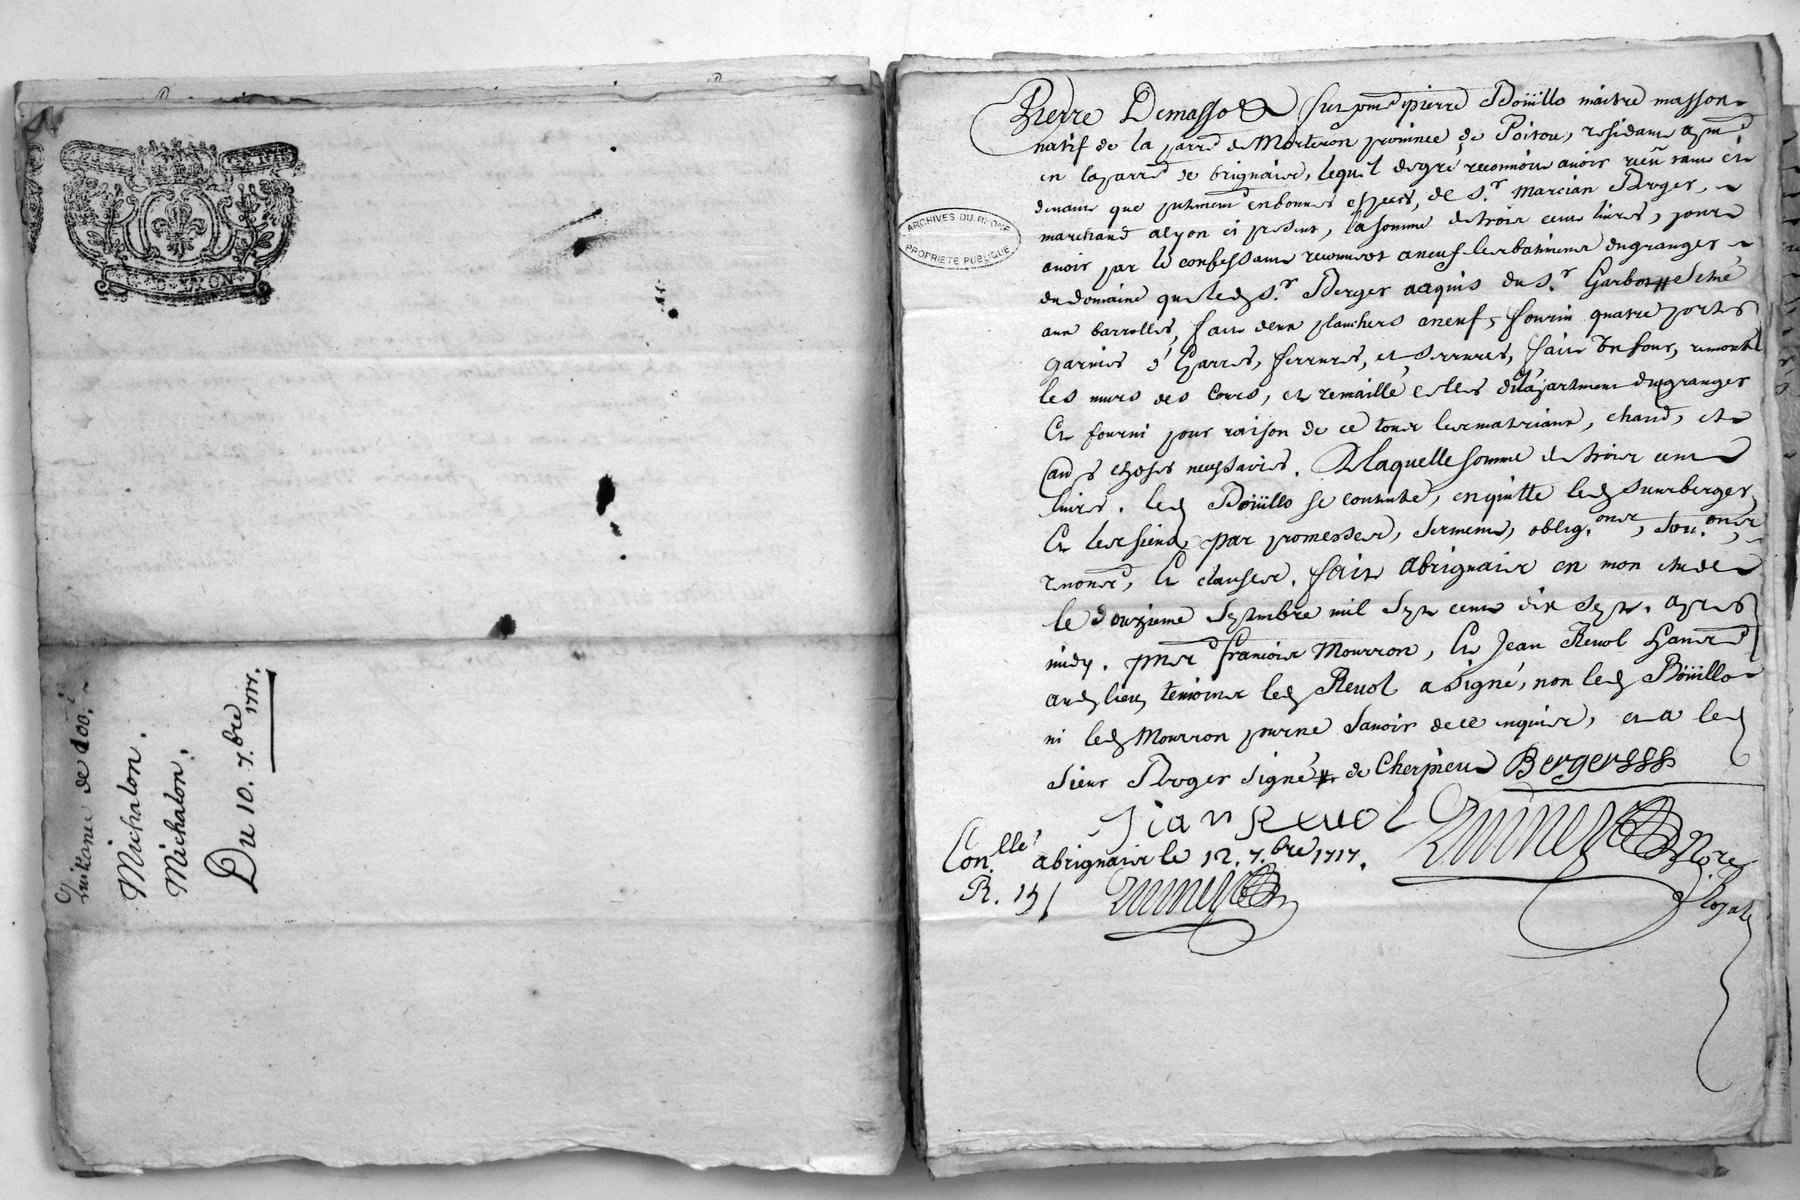 GEN. DE LYON
Quittance de 100ll.
Michalon.
Michalon.
Du 10. 7.bre
1717.
ARCHIVES DU RHONE
PROPRIETE PUBLIQUE
Pierre Demasso & fut pnt pierre Boüillo maitre masson
natif de la parre de Morteron province de Poitou, residant apnt
en laparre de brignais, lequel degré reconnoit avoir reçu tant cÿ
devant que pntement en bonnes especes, de S.r Marcian Berger,
marchand alyon ci present, la somme detrois cent livres, pour
avoir par le confessant reconvert aneuf les batimens du granger
du domaine que led S.r Berger acquis du S.r situé
aux barrolles, fait deux planchers aneuf, fourni quatre portes
garnies de barres, ferrures, et serrures, fait un four, remonté
les murs des cours, et remaillé celles du apartment du granger
et fourni pour raison de ce tous les materiaux, chaud, et
autres choses necessaires. De laquelle somme de trois cent
livres. led Boüillo se contente, en quitte led sieur berger,
et les siens, par promesses, serment, oblig.ons, sou.ons,
renons, et clauses. fait abrignais en mon etude
le douzieme septembre mil sept cent dix sept. apres
midy. pnts francois Mourron, et Jean Revol
aud lieu, temoins led Revol a signé, non led Boüillo
ni led Mourron pour ne savoir de ce enquis, et a led
sieur Berger signé de Cherpieux Berger
Jian Revol
Con.llé abrignais le 12. 7.bre 1717.
R.
Nore
Royal